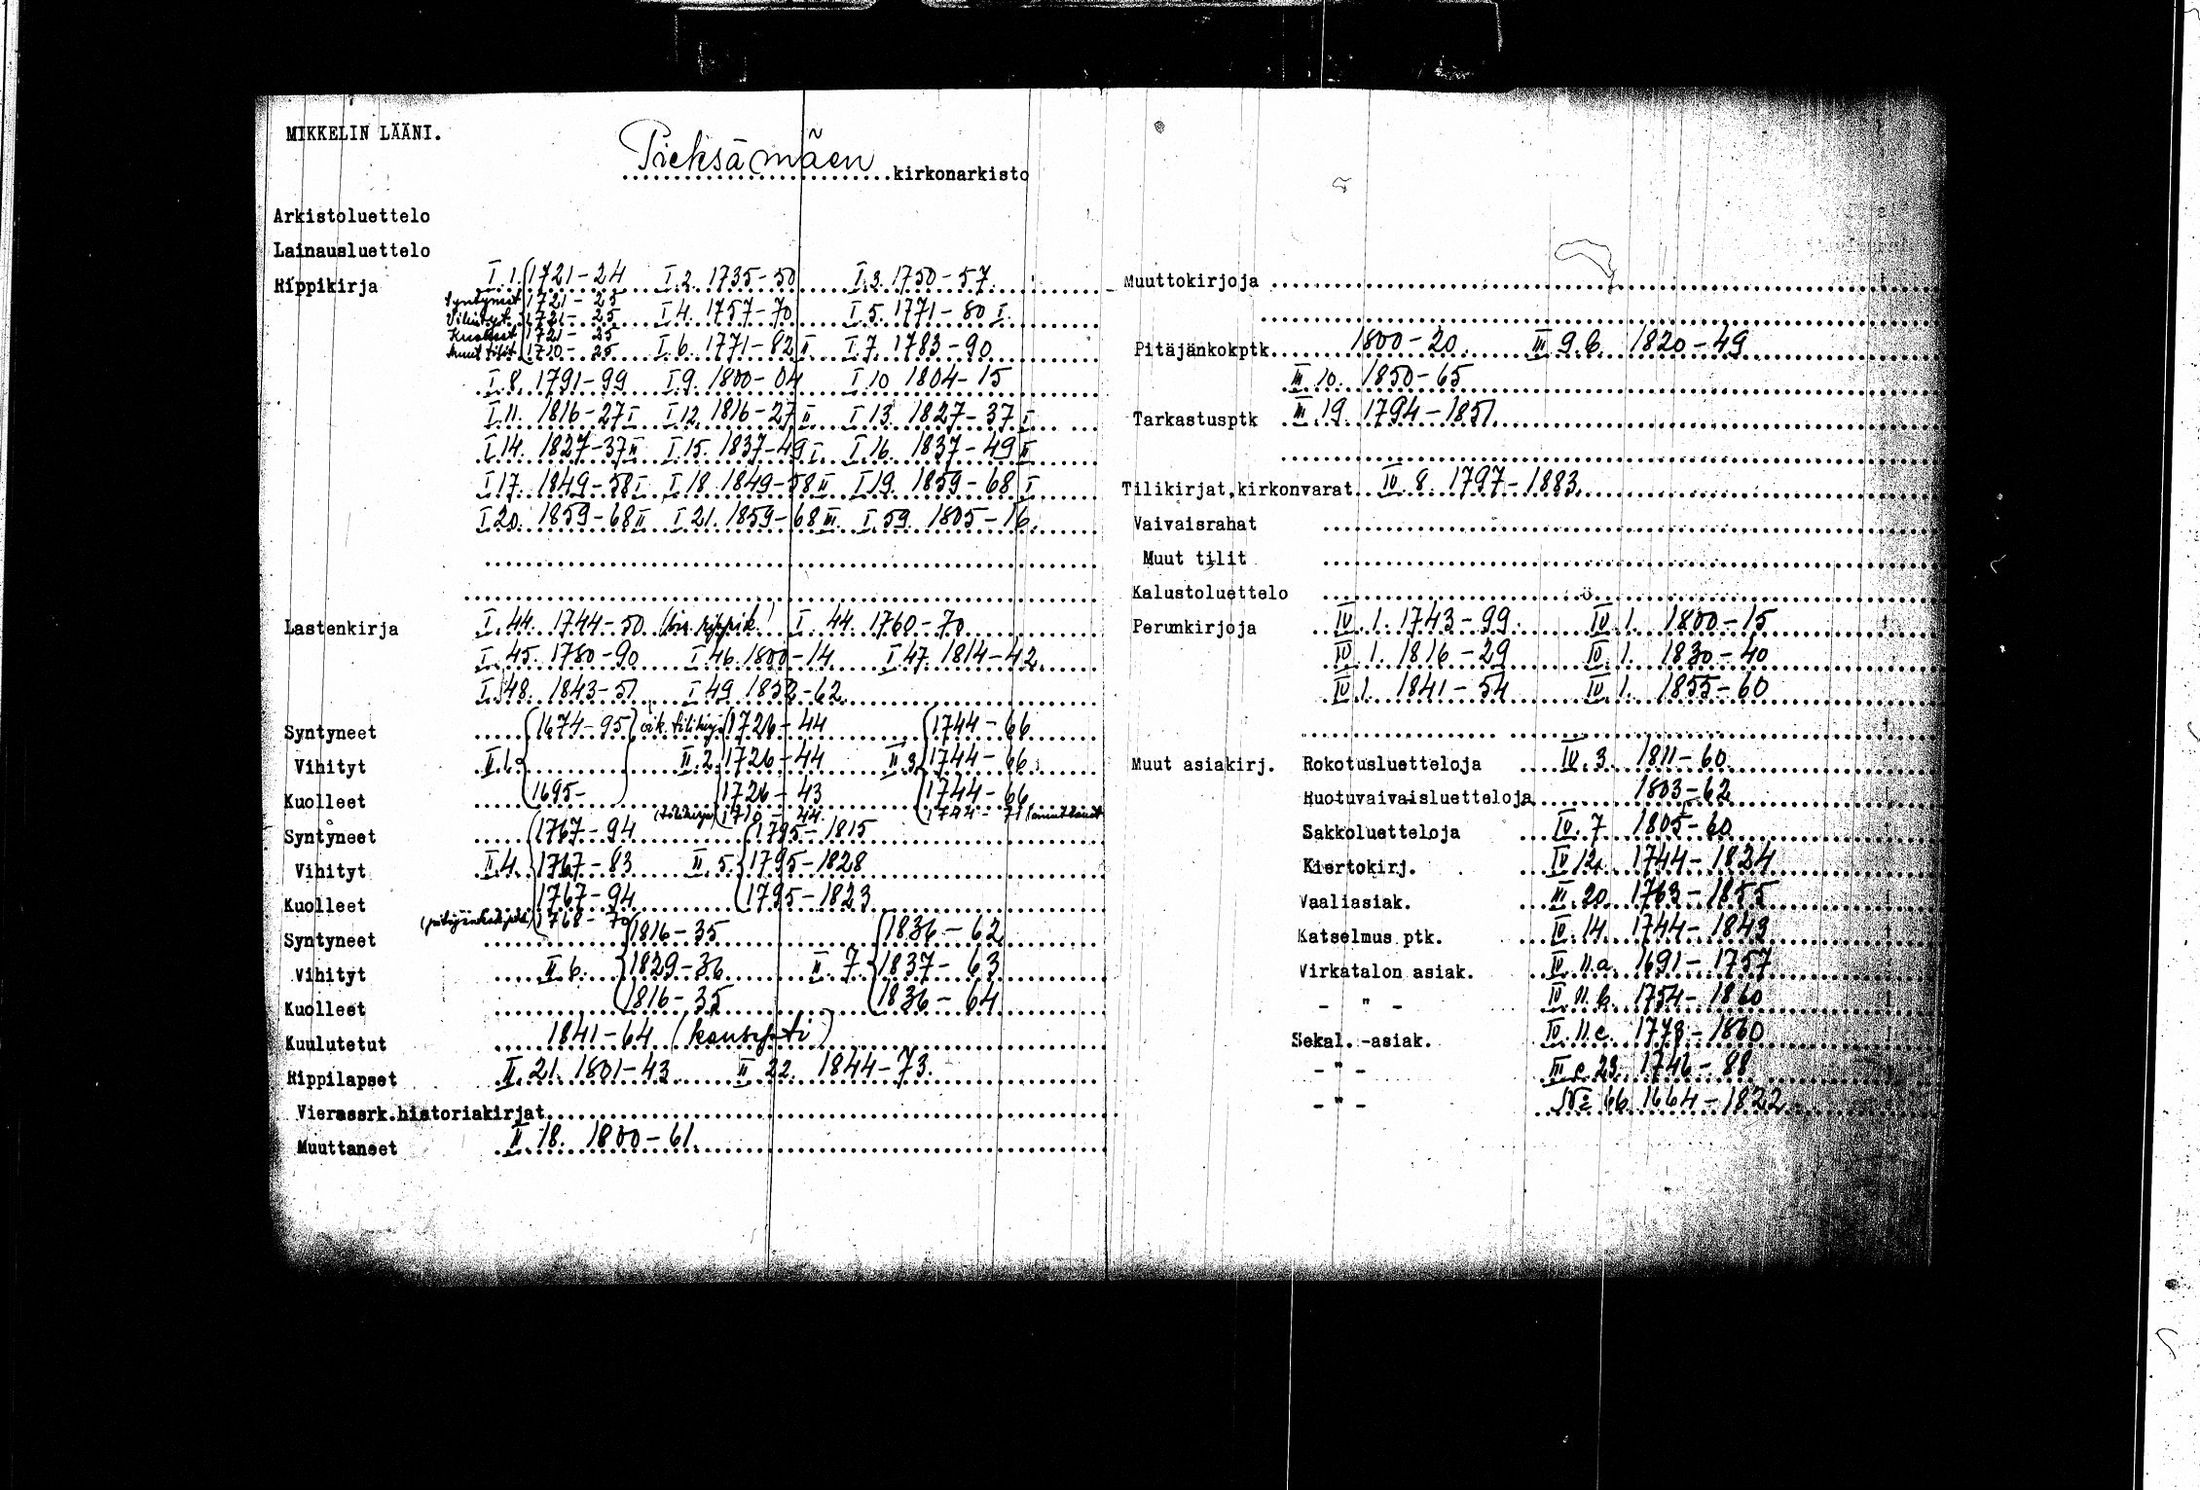 MIKKELIN LÄÄNI.
Pieksämäen kirkonarkisto
Arkistoluettelo
Lainausluettelo
Rippikirja I.1. 1721-24 I.2. 1735-50 I.3. 1750-57.
Syntyneet 1721-25
Vihityt 1721-25 I.4. 1757-70 I.5. 1771-80 I.
Kuolleet 1721-25
Muut tilit 1710-25 I.6. 1771-82 II I.7. 1783-90
I.8. 1791-99 I.9. 1800-04 I.10 1804-15
I.11. 1816-27 I I.12. 1816-27 II I.13. 1827-37 I
I.14. 1827-37 II I.15. 1837-49 I. I.16. 1837-49 II
I.17. 1849-58 I I.18. 1849-58 II I.19. 1859-68 I
I.20. 1859-68 II I.21. 1859-68 III I.59. 1805-16.
Lastenkirja I.44. 1744-50 rippik. I.44. 1760-70
I.45. 1780-90 I.46. 1800-14 I.47. 1814-42
I.48. 1843-51 I.49 1852-62
Syntyneet 1674-95 1726-44 1744-66
Vihityt II.1. II.2. 1726-44 II.3. 1744-66
Kuolleet 1695- 1726-43 1744-66
(tilikirja) 1710-44. 1744-71 (muuttaneet
Syntyneet 1767-94 1795-1815
Vihityt II.4. 1767-83 II.5. 1795-1828
Kuolleet 1767-94 1795-1823
(pitäjänkokptk) 1768-79
Syntyneet 1816-35 1836-62
Vihityt II.6. 1829-36 II.7. 1837-63
Kuolleet 1816-35 1836-64
Kuulutetut 1841-64 (konsepti)
Rippilapset II.21. 1801-43 II 22. 1844-73.
Vierassrk.historiakirjat
Muuttaneet II.18. 1800-61.
Muuttokirjoja
Pitäjänkokptk 1800-20. III 9.b. 1820-49
III 10. 1850-65
Tarkastusptk III.19. 1794-1851
Tilikirjat,kirkonvarat IV.8. 1797-1883
Vaivaisrahat
Muut tilit
Kalustoluettelo
Perunkirjoja IV.1. 1743-99. IV.1. 1800-15
IV.1. 1816-29 IV.1. 1830-40
IV.1. 1841-54 IV.1. 1855-60
Muut asiakirj. Rokotusluetteloja IV.3. 1811-60
Ruotuvaivaisluetteloja 1803-62
Sakkoluetteloja IV.7 1805-60
Kiertokirj. IV 12. 1744-1824
Vaaliasiak. III.20. 1763-1855
Katselmus ptk. IV.14. 1744-1843
Virkatalon asiak. IV.11.a. 1691-1757
- " - IV.11.b. 1754-1860
Sekal.-asiak. IV.11.c. 1778-1860
- " - III.c.23. 1746-88
- " - 66. 1664-1822